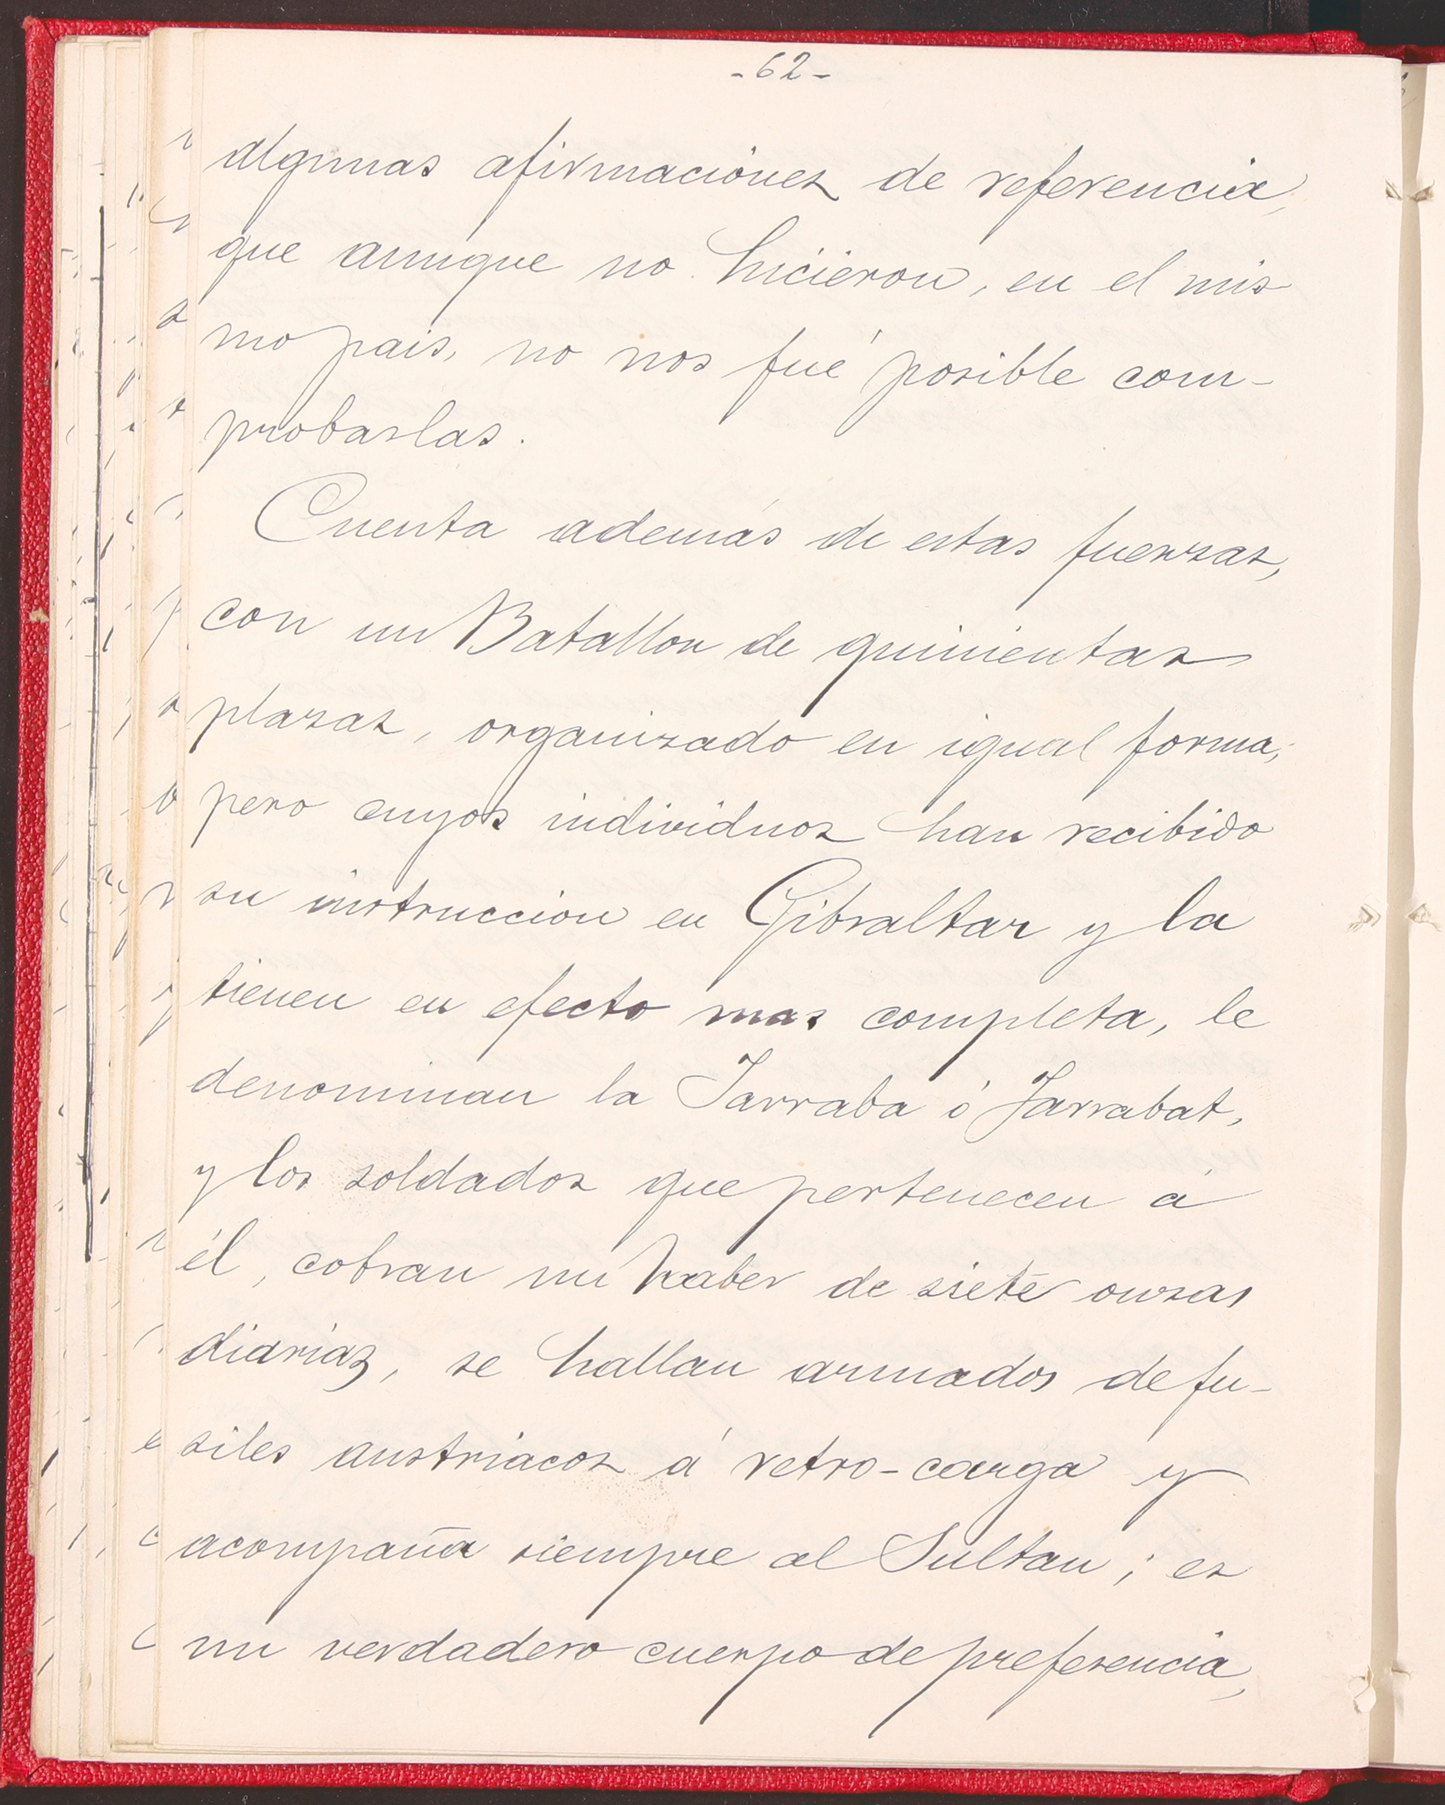 -62-
algunas afirmaciones de referencia,
que aunque no hicieron, en el mis
mo pais, no nos fué posible com-
probarlas.
Cuenta además de estas fuerzas,
con un Batallon de quinientas
plazas, organizado en igual forma,
pero cuyos individuos han recibido
su instruccion en Gibraltar y la
tienen en efecto mas completa, le
denominan la Jarraba ó Jarrabat,
y los soldados que pertenecen á
él, cobran un haber de siete onzas
diarias, se hallan armados de fu-
siles austriacos á retro-carga y
acompaña siempre al Sultan; es
un verdadero cuerpo de preferencia,